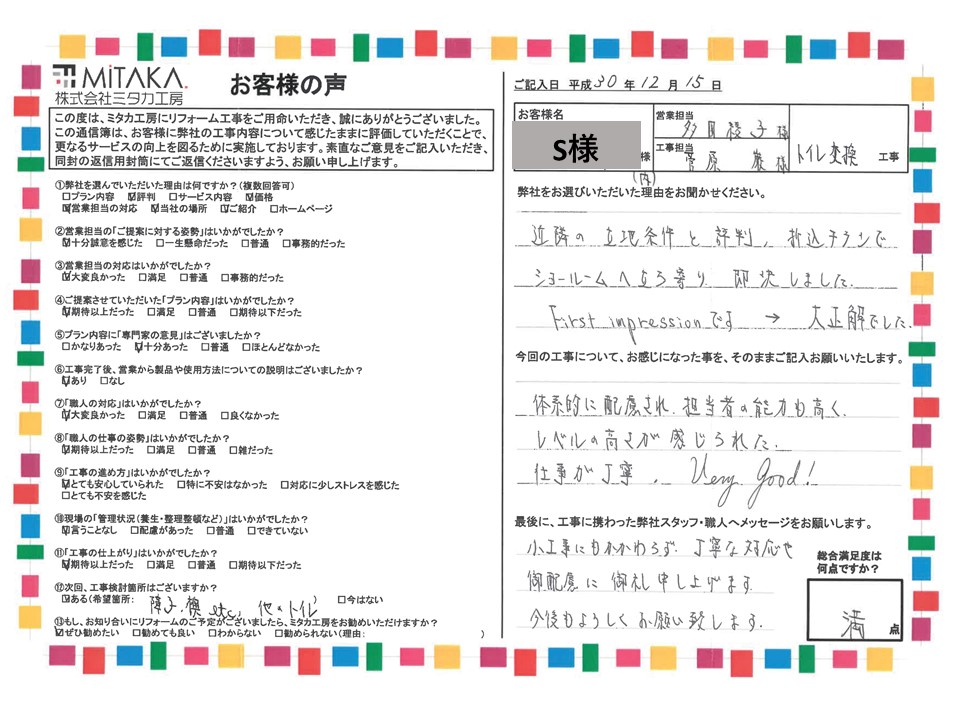 MiTAKA.
株式会社ミタカ工房
お客様の声
この度は、ミタカ工房にリフォーム工事をご用命いただき、誠にありがとうございました。
この通信簿は、お客様に弊社の工事内容について感じたままに評価していただくことで、
更なるサービスの向上を図るために実施しております。素直なご意見をご記入いただき、
同封の返信用封筒にてご返信くださいますよう、お願い申し上げます。
①弊社を選んでいただいた理由は何ですか?(複数回答可)
□プラン内容 ☑評判 □サービス内容 ☑価格
☑営業担当の対応 ☑当社の場所 ☑ご紹介 □ホームページ
②営業担当の「ご提案に対する姿勢」はいかがでしたか?
☑十分誠意を感じた □一生懸命だった □普通 □事務的だった
③営業担当の対応はいかがでしたか?
☑大変良かった □満足 □普通 □事務的だった
④ご提案させていただいた「プラン内容」はいかがでしたか?
☑期待以上だった □満足 □普通 □期待以下だった
⑤プラン内容に「専門家の意見」はございましたか?
□かなりあった ☑十分あった □普通 □ほとんどなかった
⑥工事完了後、営業から製品や使用方法についての説明はございましたか?
☑あり □なし
⑦「職人の対応」はいかがでしたか?
☑大変良かった □満足 □普通 □良くなかった
⑧「職人の仕事の姿勢」はいかがでしたか?
☑期待以上だった □満足 □普通 □雑だった
⑨「工事の進め方」はいかがでしたか?
☑とても安心していられた □特に不安はなかった □対応に少しストレスを感じた
□とても不安を感じた
⑩現場の「管理状況(養生・整理整頓など)」はいかがでしたか?
☑言うことなし □配慮があった □普通 □できていない
⑪「工事の仕上がり」はいかがでしたか?
☑期待以上だった □満足 □普通 □期待以下だった
⑫次回、工事検討箇所はございますか?
☑ある(希望箇所: 障子、襖 etc, 他のトイレ ) □今はない
⑬もし、お知り合いにリフォームのご予定がございましたら、ミタカ工房をお勧めいただけますか?
☑ぜひ勧めたい □勧めても良い □わからない □勧められない(理由: )
ご記入日 平成30年12月15日
お客様名
S様
様
(内)
営業担当
綾子様
工事担当
菅原 巌様
トイレ交換 工事
弊社をお選びいただいた理由をお聞かせください。
近隣の立地条件と評判、折込チラシで
ショールームへ立ち寄り 即決しました.
First impressionです → 大正解でした.
今回の工事について、お感じになった事を、そのままご記入お願いいたします。
体系的に配慮され、担当者の能力も高く、
レベルの高さが感じられた.
仕事が丁寧、Very good!
最後に、工事に携わった弊社スタッフ・職人へメッセージをお願いします。
小工事にもかかわらず、丁寧な対応や
御配慮に御礼申し上げます.
今後もよろしくお願い致します.
総合満足度は
何点ですか?
満点